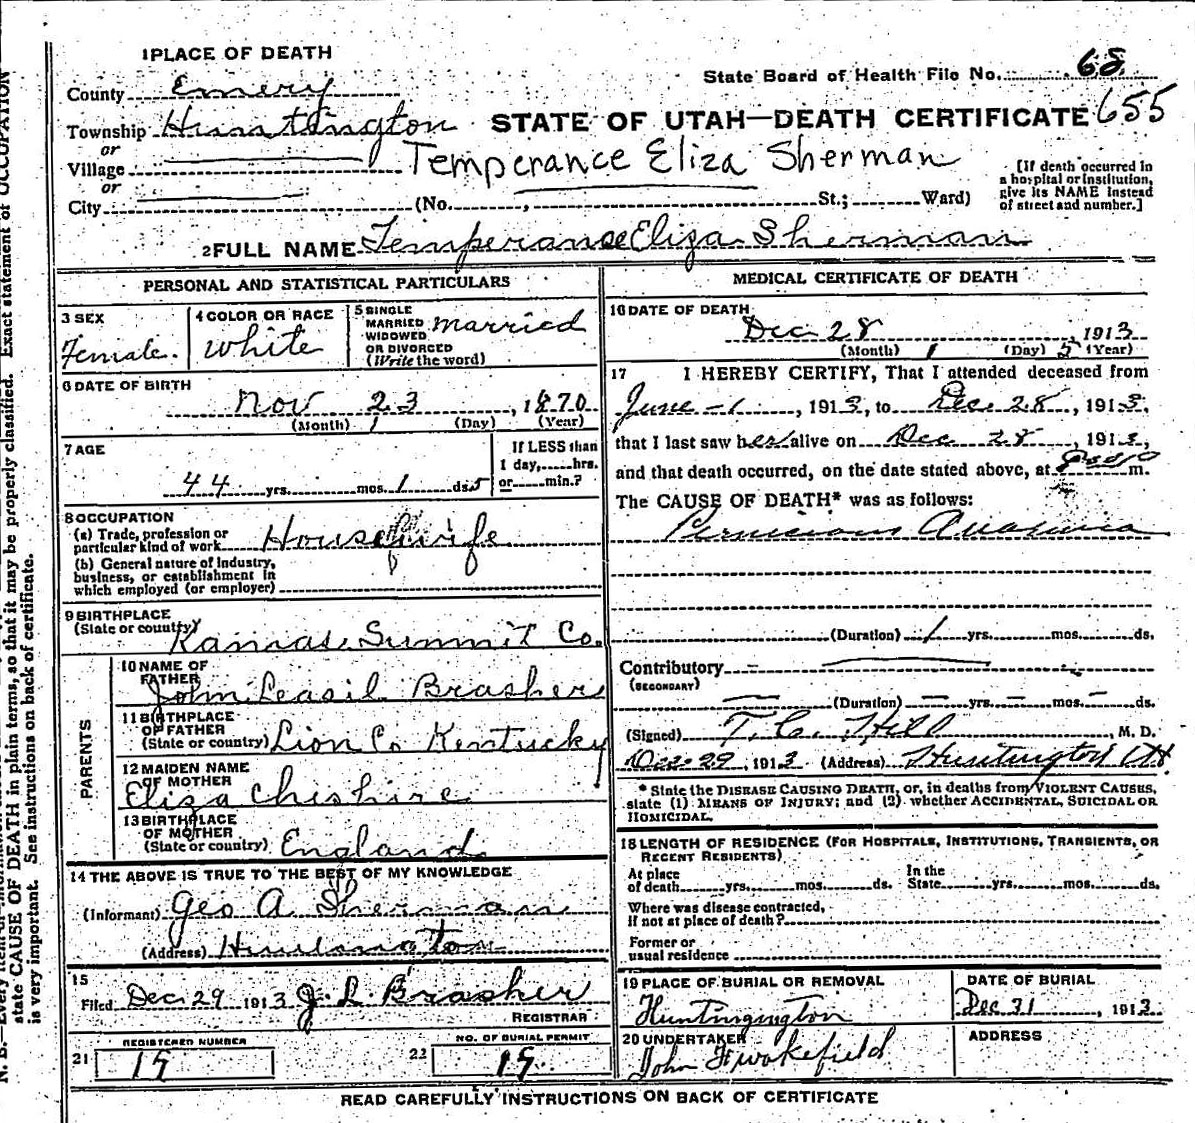 1 PLACE OF DEATH
State Board of Health File No. 68
County Emery
Township Huntington STATE OF UTAH—DEATH CERTIFICATE 655
or
Village Temperance Eliza Sherman
or
City (No. , St.; Ward)
[If death occurred in a hospital or institution, give its NAME instead of street and number.]
2 FULL NAME Temperance Eliza Sherman
PERSONAL AND STATISTICAL PARTICULARS
3 SEX
Female.
4 COLOR OR RACE
White
5 SINGLE
MARRIED
WIDOWED
OR DIVORCED
(Write the word)
married
6 DATE OF BIRTH
Nov 23, 1870
(Month) 1 (Day) (Year)
7 AGE
44 yrs. mos. 1 ds. 5
If LESS than
1 day, hrs.
or min.?
8 OCCUPATION
(a) Trade, profession or
particular kind of work Housewife
(b) General nature of industry,
business, or establishment in
which employed (or employer)
9 BIRTHPLACE
(State or country) Kamas Summit Co.
PARENTS
10 NAME OF
FATHER
John Leasil Brashers
11 BIRTHPLACE
OF FATHER
(State or country) Lion Co Kentucky
12 MAIDEN NAME
OF MOTHER
Eliza Cheshire
13 BIRTHPLACE
OF MOTHER
(State or country) England
14 THE ABOVE IS TRUE TO THE BEST OF MY KNOWLEDGE
(Informant) Geo A Sherman
(Address) Huntington
15
Filed Dec. 29 1913 J. L. Brasher
REGISTRAR
21 REGISTERED NUMBER
19
22 NO. OF BURIAL PERMIT
19
MEDICAL CERTIFICATE OF DEATH
16 DATE OF DEATH
Dec 28, 1913
(Month) 1 (Day) 5 (Year)
17 I HEREBY CERTIFY, That I attended deceased from
June - 1, 1913, to Dec. 28, 1913,
that I last saw her alive on Dec 28, 1913,
and that death occurred, on the date stated above, at m.
The CAUSE OF DEATH* was as follows:
Pernicious Anaemia
(Duration) 1 yrs. mos. ds.
Contributory
(SECONDARY)
(Duration) yrs. mos. ds.
(Signed) T. C. Hill, M. D.
Dec. 29, 1913 (Address) Huntington Ut.
* State the DISEASE CAUSING DEATH, or, in deaths from VIOLENT CAUSES,
state (1) MEANS OF INJURY; and (2) whether ACCIDENTAL, SUICIDAL OR
HOMICIDAL.
18 LENGTH OF RESIDENCE (FOR HOSPITALS, INSTITUTIONS, TRANSIENTS, OR
RECENT RESIDENTS)
At place
of death yrs. mos. ds.
In the
State yrs. mos. ds.
Where was disease contracted,
If not at place of death?
Former or
usual residence
19 PLACE OF BURIAL OR REMOVAL
Huntingington
DATE OF BURIAL
Dec 31, 1913
20 UNDERTAKER
John F Wakefield
ADDRESS
READ CAREFULLY INSTRUCTIONS ON BACK OF CERTIFICATE
state CAUSE OF DEATH in plain terms, so that it may be properly classified. Exact statement of OCCUPATION
is very important. See instructions on back of certificate.